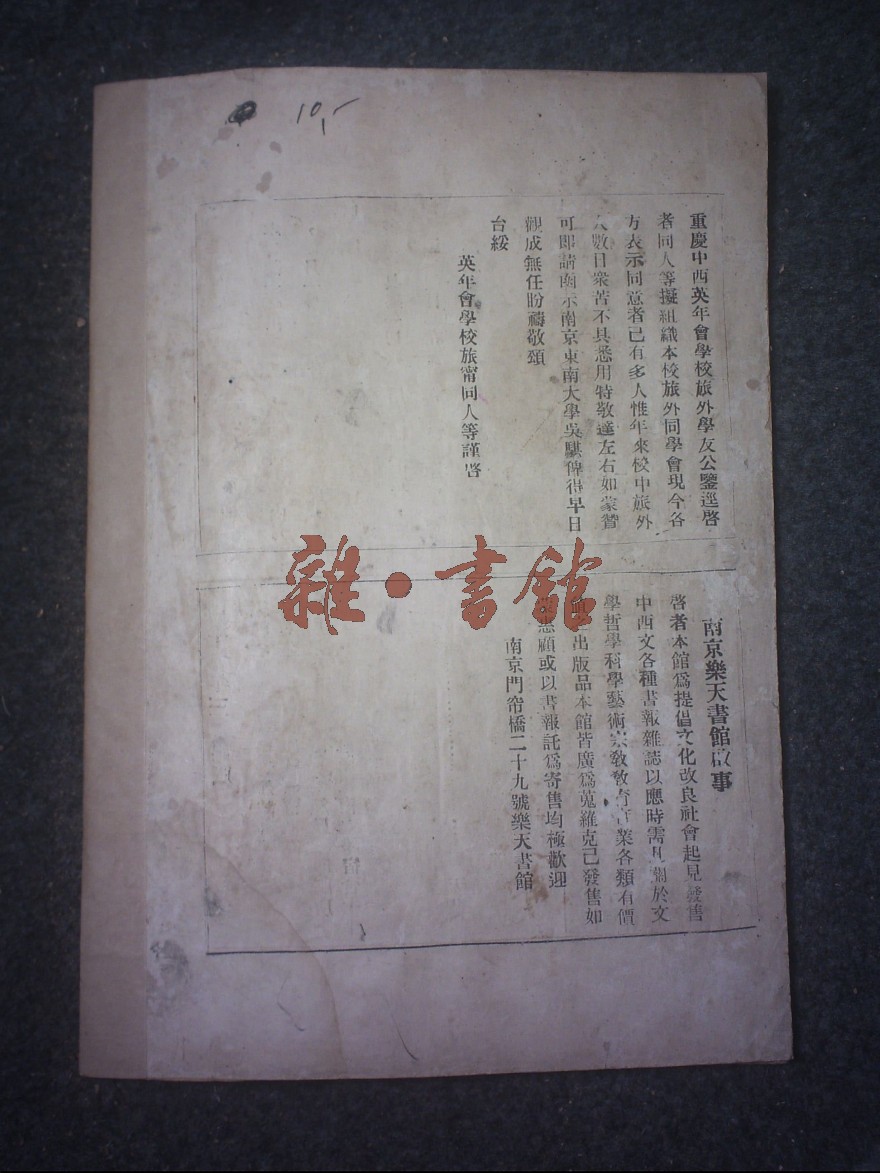 10,-
重慶中西英年會學校旅外學友公鑒逕啓
者同人等擬組織本校旅外同學會現今各
方表示同意者已有多人惟年來校中旅外
人數日衆苦不具悉用特敬達左右如蒙贊
可卽請函示南京東南大學吳騏俾得早日
觀成無任盼禱敬頌
台綏
英年會學校旅甯同人等謹啓
南京樂天書館啟事
啓者本館爲提倡文化改良社會起見發售
中西文各種書報雜誌以應時需凡關於文
學哲學科學藝術宗敎敎育實業各類有價
出版品本館皆廣爲蒐羅克己發售如
惠顧或以書報託爲寄售均極歡迎
南京門帘橋二十九號樂天書館
雜·書館